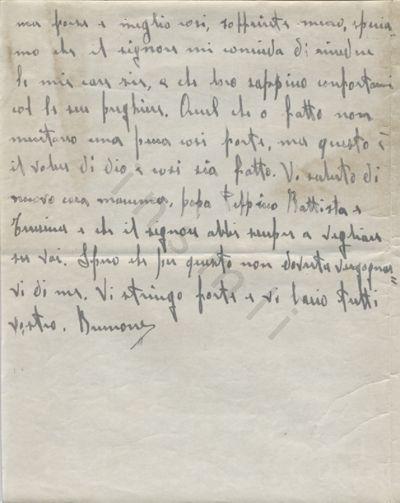 ma forse è meglio così, soppinte muoio, speria=
mo che il signore mi conceda di rivedere
le mie care zie, e che loro sappino confortarmi
col le sue preghiere. Quel che o fatto non
meritavo una pena cosi forte, ma questo è
il voler di dio e cosi sia fatto. Vi saluto di
nuovo cara mamma, papa Peppino Battista e
Teresina e che il signore abbi sempre a vegliare
su voi. Spero che per questo non dovrete vergognar=
vi di me. Vi stringo forte e vi bacio tutti
vostro. Brunone